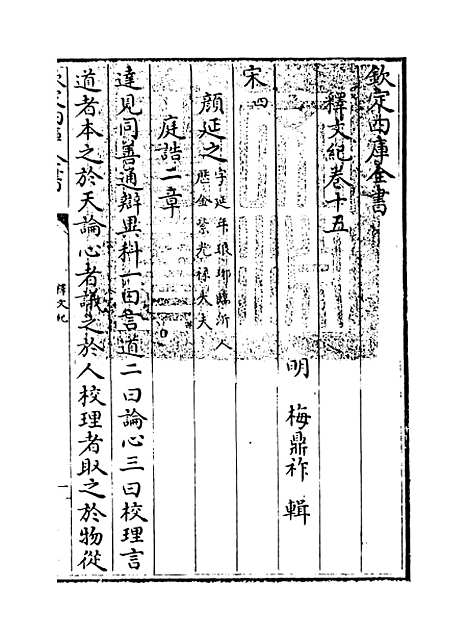 欽定四庫全書
釋文紀卷十五
明 梅鼎祚 輯
宋四
顔延之字延年琅琊臨沂人
歴金紫光祿大夫
庭誥二章
達見同善通辯異科一曰言道二曰論心三曰校理言
道者本之於天論心者議之於人校理者取之於物從
欽定四庫全書
釋文紀
一